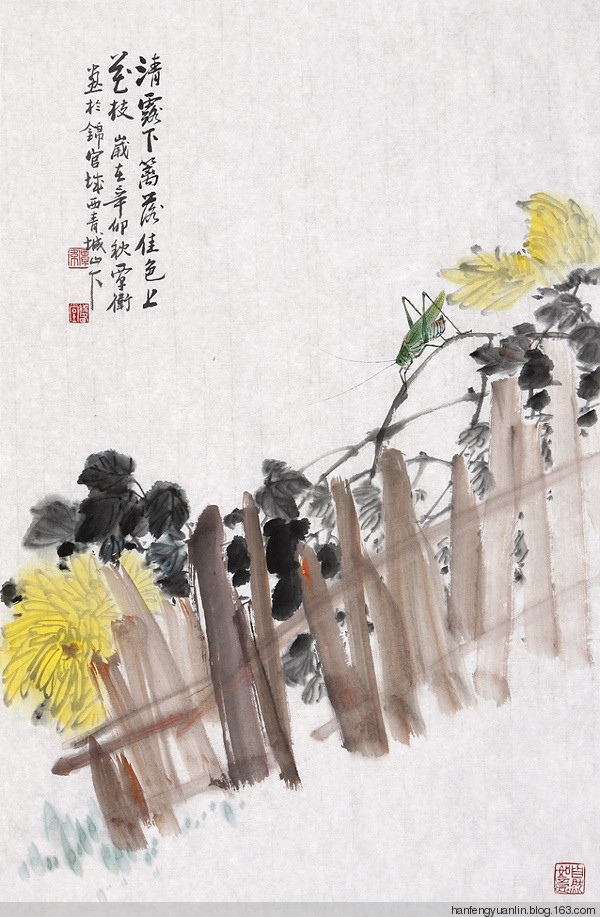 清露下篱落佳色上
花枝 歲在辛卯秋覃
畫於錦官城西青城山下
hanfengyuanlin.blog.163.com